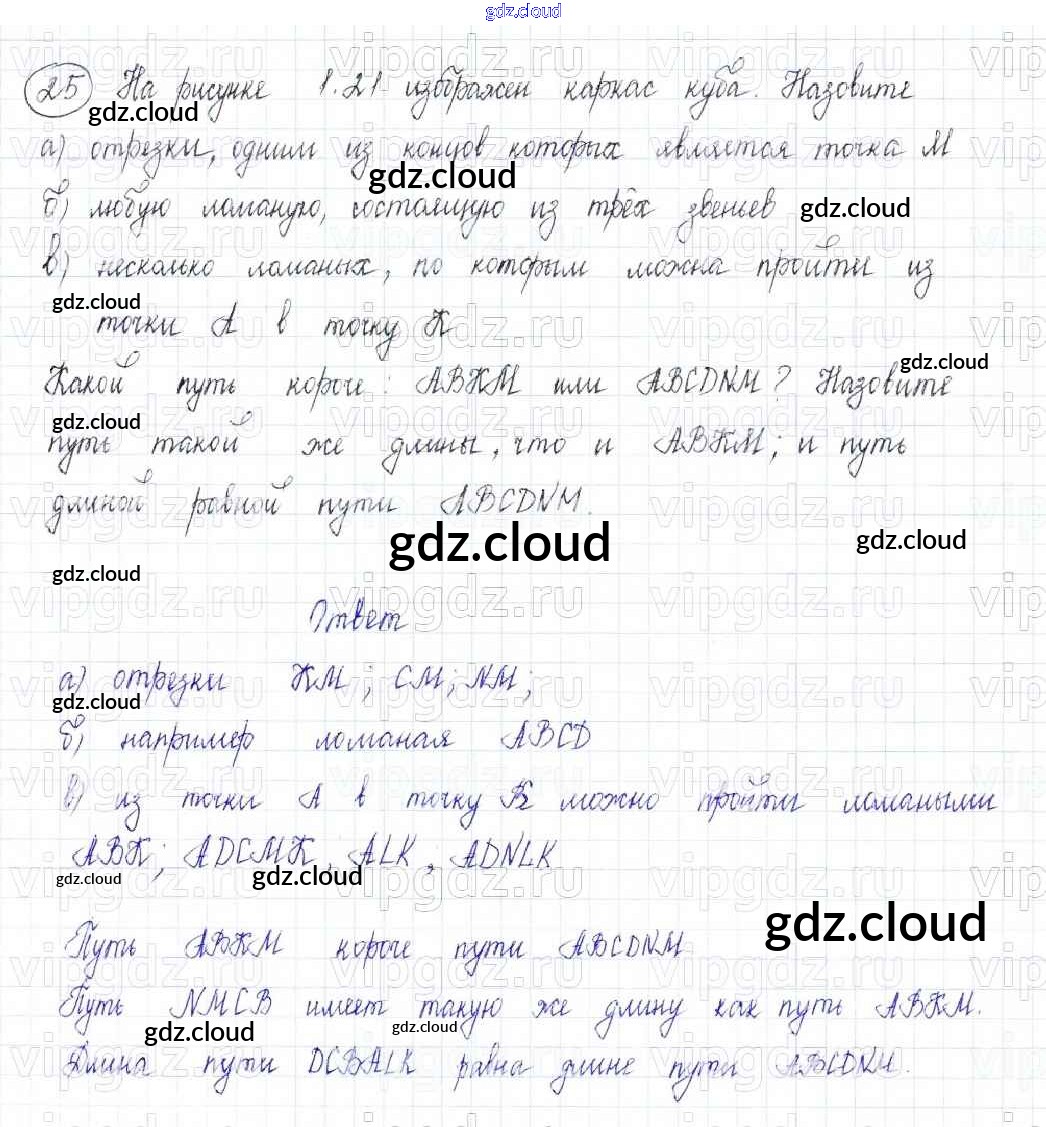 gdz.cloud
25 На рисунке 1.21 изображен каркас куба. Назовите
gdz.cloud
а) отрезки, одним из концов которых является точка М
gdz.cloud
б) любую ломаную, состоящую из трёх звеньев gdz.cloud
в) несколько ломаных, по которым можна пройти из
gdz.cloud
точки А в точку К
gdz.cloud
Какой путь короче: АВКМ или ABCDNM? Назовите
gdz.cloud
путь такой же длины, что и АВКМ; и путь
длиной равной пути ABCDNM.
gdz.cloud gdz.cloud
gdz.cloud
Ответ
а) отрезки КМ; СМ; NM;
gdz.cloud
б) например ломаная ABCD
в) из точки А в точку К можно пройти ломаными
АВК; ADCMK, ALK, ADNLK
gdz.cloud gdz.cloud
gdz.cloud
Путь АВКМ короче пути ABCDNM
Путь NMCB имеет такую же длину как путь АВКМ.
gdz.cloud gdz.cloud
Длина пути DCBALK равна длине пути ABCDNM.
vipgdz.ru